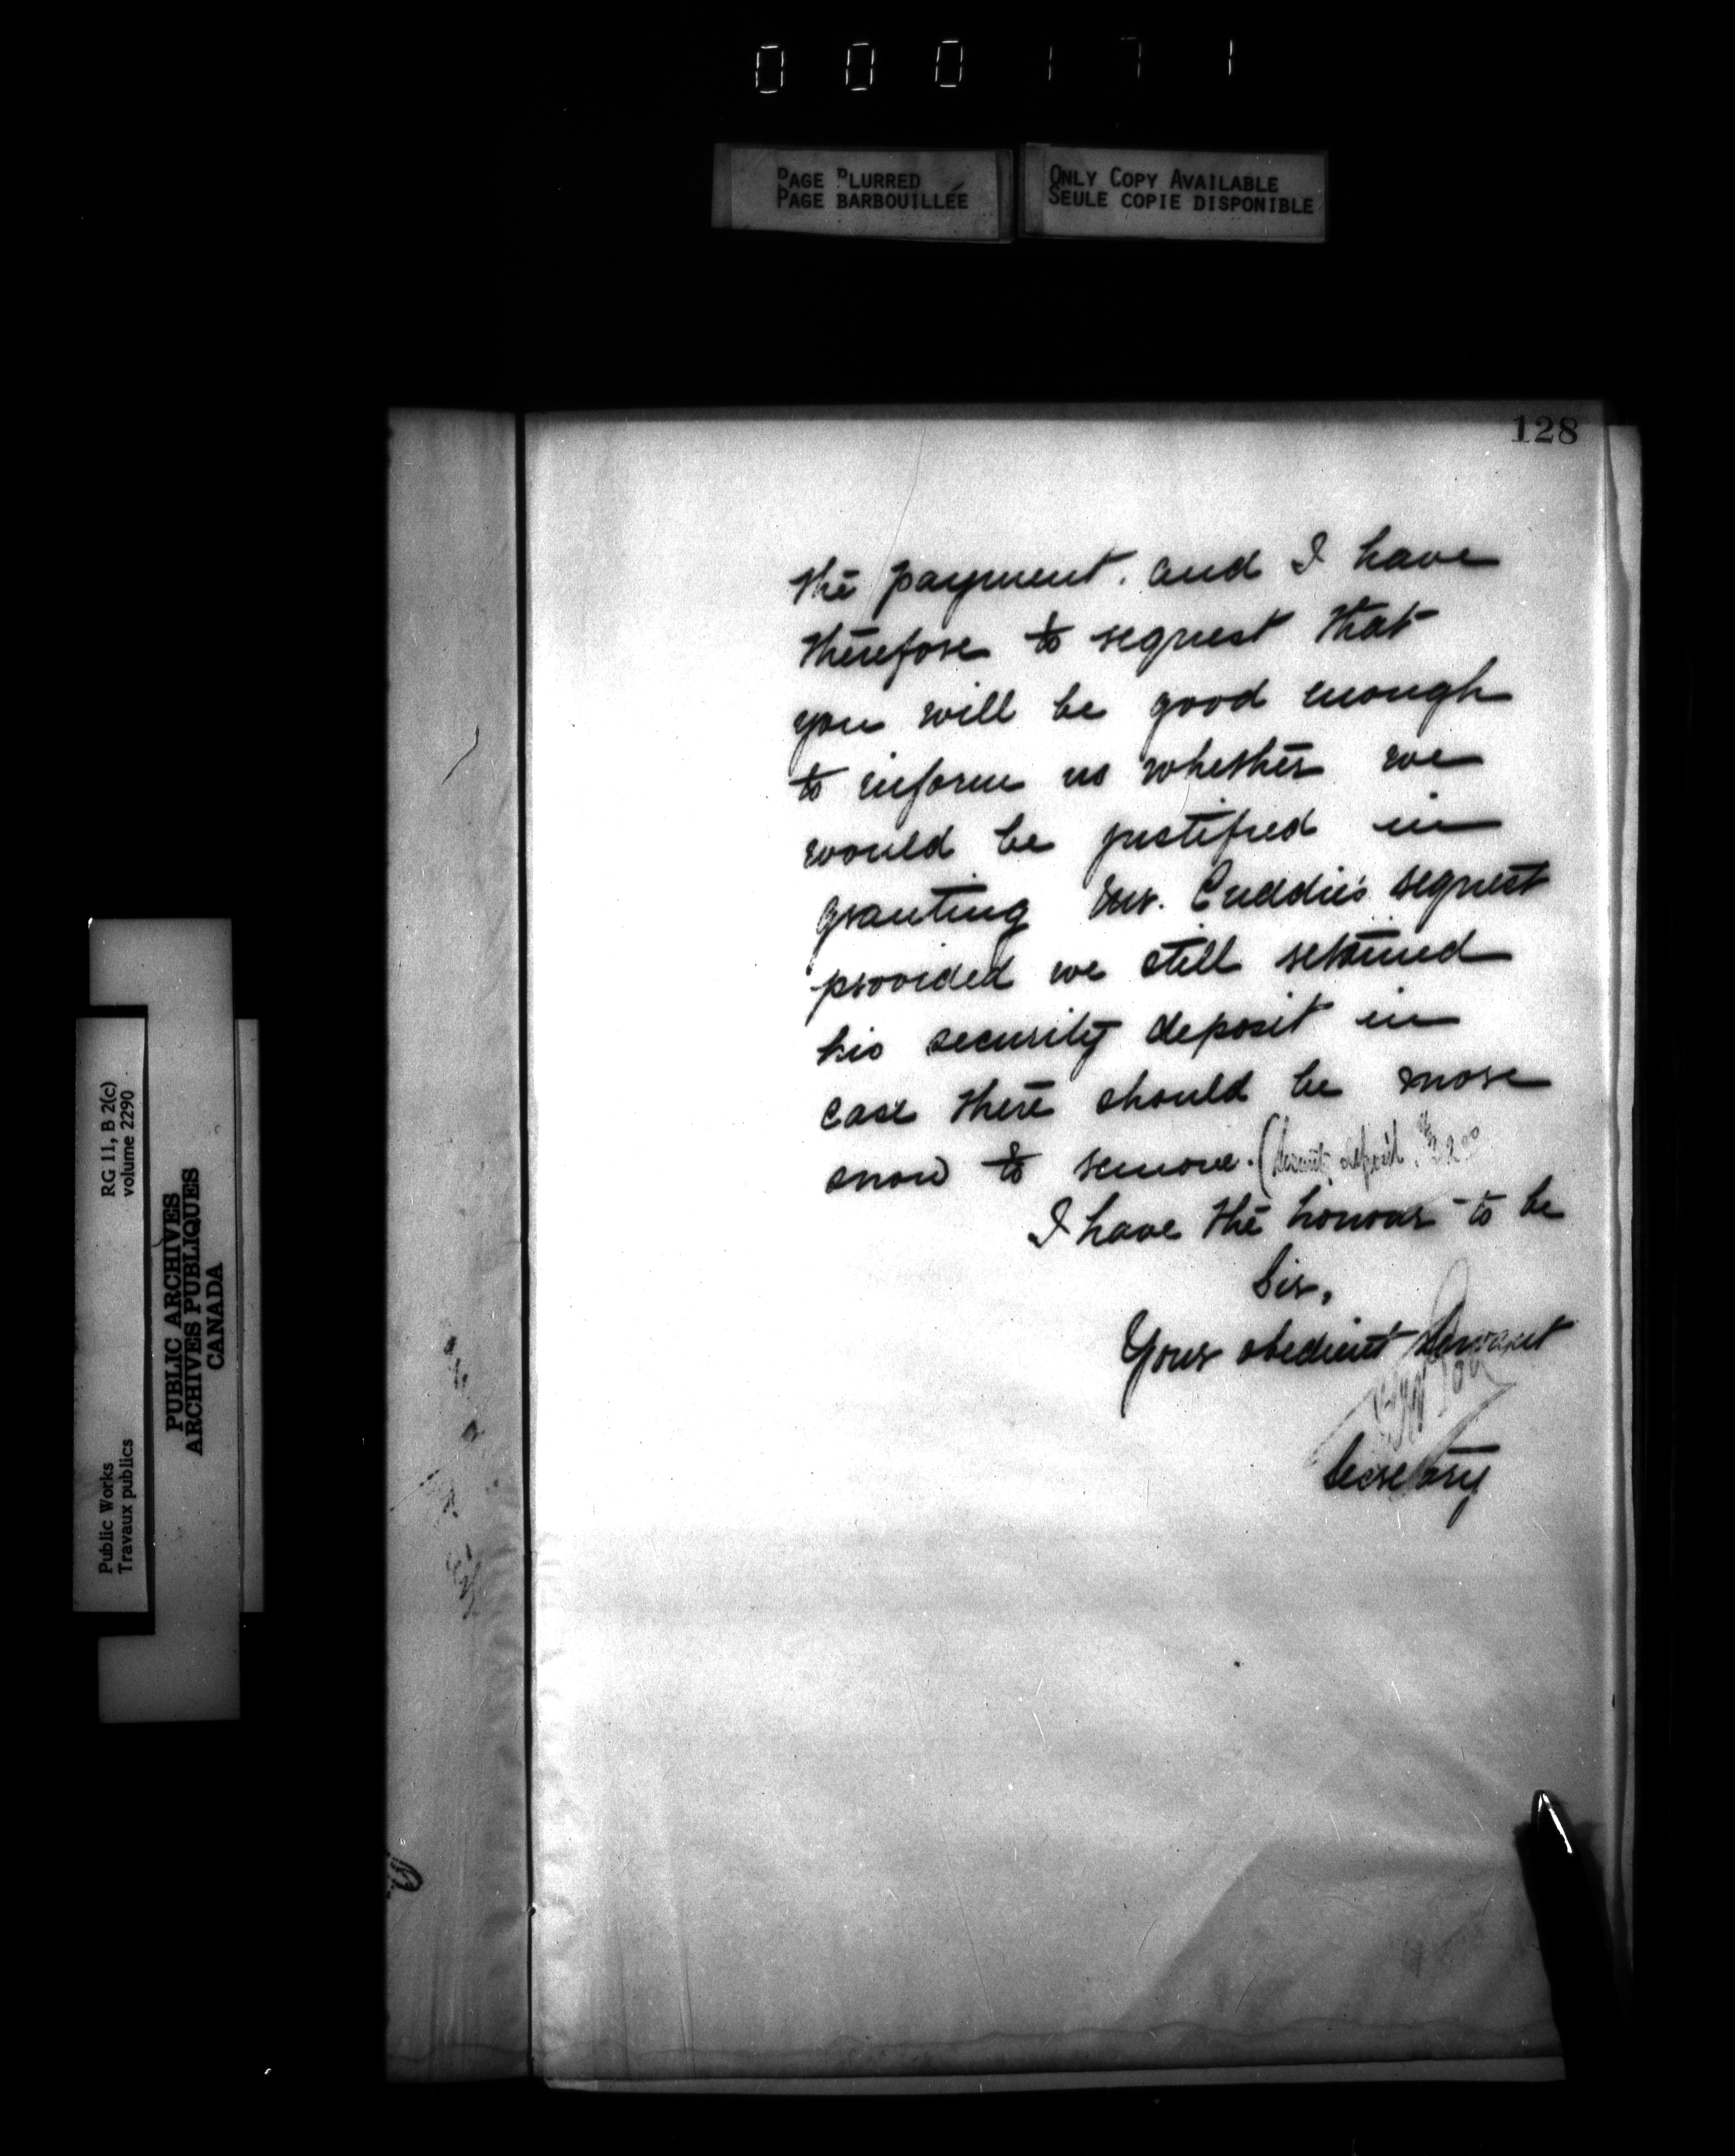 000171
PAGE BLURRED
PAGE BARBOUILLÉE
ONLY COPY AVAILABLE
SEULE COPIE DISPONIBLE
128
the payment. and I have
therefore to request that
you will be good enough
to inform us whether we
would be justified in
granting Mr. Cuddie's request
provided we still retained
his security deposit in
case there should be more
snow to remove. (
deposit
I have the honour to be
Sir,
Your obedient Servant
Secretary
RG 11, B 2(c)
volume 2290
Public Works
Travaux publics
PUBLIC ARCHIVES
ARCHIVES PUBLIQUES
CANADA